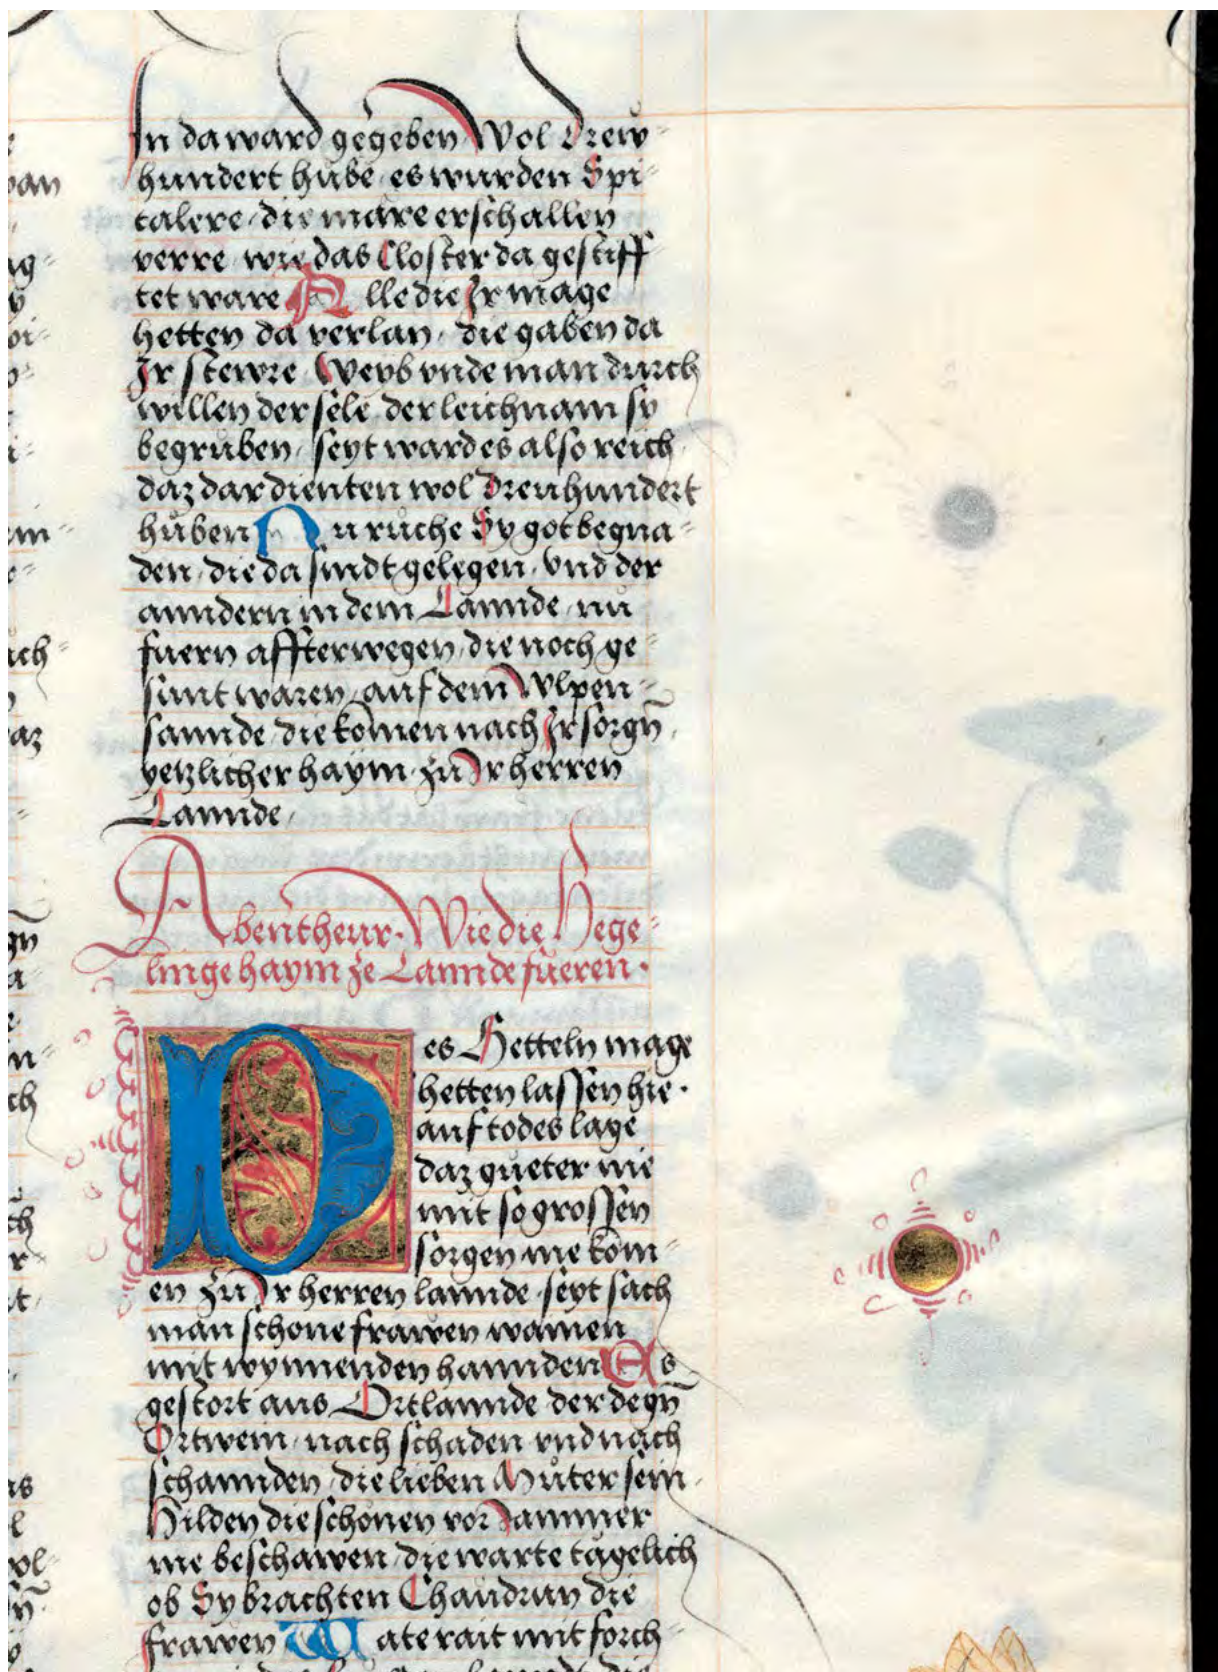 In da ward gegeben Wol drew-
hundert hube es wurden Spi-
talere / die märe erschallen
verre wie das Closter da gestiff
tet ware Alle die Ir mage
hetten da verlan / die gaben da
Ir stewre Weyb vnde man durch
willen der sele der leichnam sy
begrůben / seyt ward es also reich
daz dar dienten wol dreuhundert
hůben Nu růche Sy got begna-
den / die da sindt gelegen / vnd der
anndern in dem Lannde / nu
fuern affterwegen / die noch ge-
sunt waren / auf dem Wlpen-
sannde / die komen nach Ir sorgn̄
yetzlicher haym zů Ir herren
Lannde /
Abentheur · Wie die Hege-
linge haym ze Lannde fůeren ·
Des Hetteln mage
hetten lassen hie ·
auf todes lage
daz gueter nie
mit so grossen
sorgen nie kom-
en zů Ir herren lannde / seyt sach
man schone frawen wainen
mit wynnenden hannden Es
gestort aus Ortlannde der degn̄
Ortwein / nach schaden vnd nach
schannden / die lieben Můter sein /
Hilden die schonen vor Jammer
nie beschawen / die warte tägelich
ob Sy brachten Chaudrun die
frawen Wate rait mit forch-